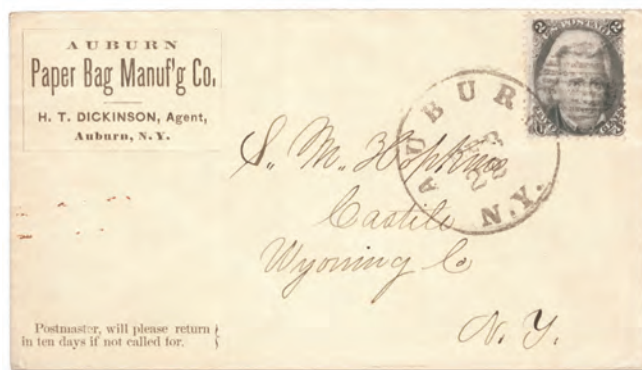 AUBURN
Paper Bag Manuf'g Co.
H. T. DICKINSON, Agent,
Auburn, N.Y.
U.S. POSTAGE
AUBURN
N.Y.
S. M. Hopkins
Castile
Wyoming Co
N. Y.
Postmaster, will please return
in ten days if not called for.